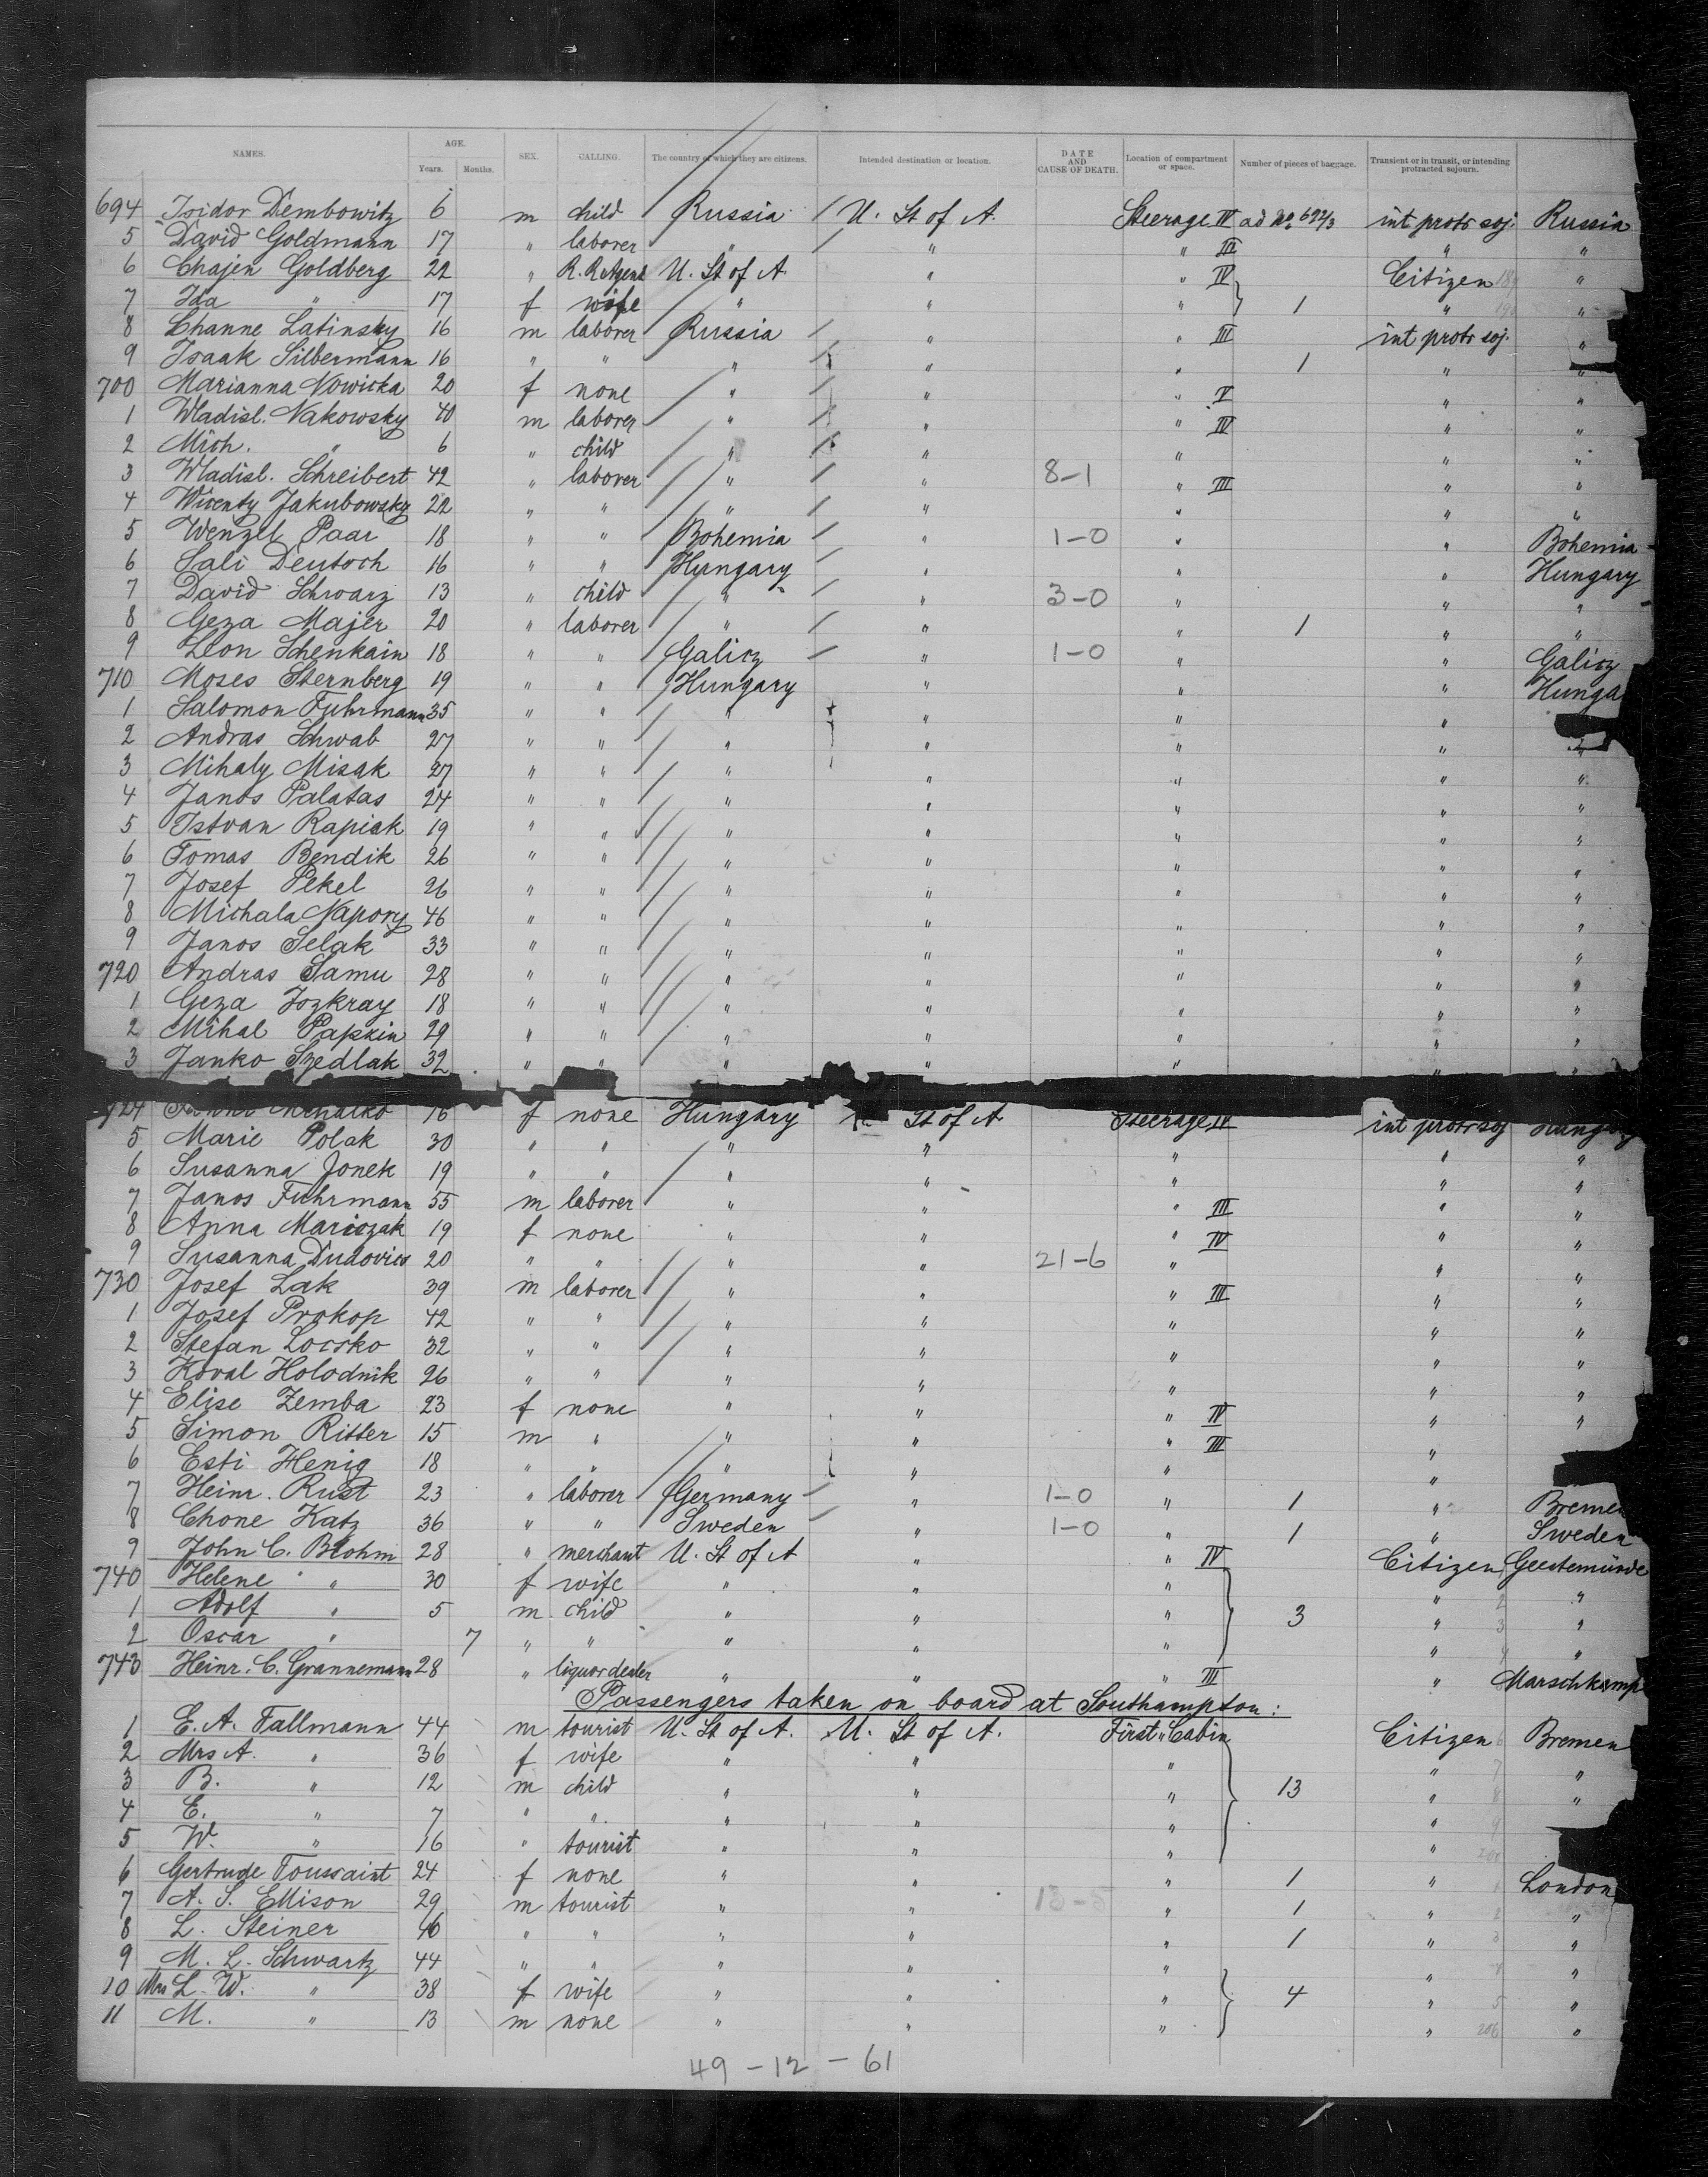 NAMES. AGE. Years. Months. SEX. CALLING. The country of which they are citizens. Intended destination or location. DATE AND CAUSE OF DEATH. Location of compartment or space. Number of pieces of baggage. Transient or in transit, or intending protracted sojourn.
694 Isidor Dembowitz 6 m child Russia U. St of A. Steerage IV ad No 692/3 int protr soj. Russia
5 David Goldmann 17 " laborer " " " III " "
6 Chajen Goldberg 22 " R.R Agent U. St of A " " IV Citizen "
7 Ida " 17 f wife " " " 1 " "
8 Channe Latinsky 16 m laborer Russia " " III int protr soj. "
9 Isaak Silbermann 16 " " " " " 1 " "
700 Marianna Nowicka 20 f none " " " V " "
1 Wladisl. Nakowsky 40 m laborer " " " IV " "
2 Mich. " 6 " child " " " " "
3 Wladisl. Schreibert 42 " laborer " " 8-1 " III " "
4 Wicenty Jakubowsky 22 " " " " " " "
5 Wenzel Paar 18 " " Bohemia " 1-0 " " Bohemia
6 Sali Deutsch 16 " " Hungary " " " Hungary
7 David Schwarz 13 " child " " 3-0 " " "
8 Geza Majer 20 " laborer " " " 1 " "
9 Leon Schenkain 18 " " Galicz " 1-0 " " Galicz
710 Moses Sternberg 19 " " Hungary " " " Hunga
1 Salomon Fuhrmann 35 " " " " " "
2 Andras Schwab 27 " " " " " " "
3 Mihaly Misak 27 " " " " " " "
4 Janos Palatas 24 " " " " " " "
5 Istvan Rapiak 19 " " " " " " "
6 Tomas Bendik 26 " " " " " " "
7 Josef Pekel 26 " " " " " " "
8 Michala Napory 46 " " " " " " "
9 Janos Selak 33 " " " " " " "
720 Andras Samu 28 " " " " " " "
1 Geza Jozkray 18 " " " " " " "
2 Mihal Papkin 29 " " " " " " "
3 Janko Szedlak 32 " " " " " " "
724 Mihalko 16 f none Hungary St of A Steerage IV int protr soj Hungary
5 Marie Polak 30 " " " " " " "
6 Susanna Jonek 19 " " " " " " "
7 Janos Fuhrmann 55 m laborer " " " III " "
8 Anna Mariszak 19 f none " " " IV " "
9 Susanna Dudovics 20 " " " " 21-6 " " "
730 Josef Lak 39 m laborer " " " III " "
1 Josef Prokop 42 " " " " " " "
2 Stefan Locsko 32 " " " " " " "
3 Koval Holodnik 26 " " " " " " "
4 Elise Zemba 23 f none " " " IV " "
5 Simon Ritter 15 m " " " " III "
6 Esti Henig 18 " " " " " "
7 Heinr. Rust 23 " laborer Germany " 1-0 " 1 " Bremen
8 Chone Katz 36 " " Sweden " 1-0 " 1 " Sweden
9 John C. Blohm 28 " merchant U. St of A " " IV Citizen Geestemünde
740 Helene " 30 f wife " " " " "
1 Adolf " 5 m child " " " 3 " "
2 Oscar " 7 " " " " " " "
743 Heinr. C. Grannemann 28 " liquor dealer " " " III " Marschkamp
Passengers taken on board at Southampton:
1 E. A. Tallmann 44 m tourist U. St of A. U. St of A. First Cabin Citizen Bremen
2 Mrs A. " 36 f wife " " " " "
3 B. " 12 m child " " " 13 " "
4 E. " 7 " " " " " "
5 W. " 16 " tourist " " " "
6 Gertrude Toussaint 24 f none " " " 1 " London
7 A. S. Ellison 29 m tourist " " 13-5 " 1 " "
8 L. Steiner 46 " " " " " 1 " "
9 M. L. Schwartz 44 " " " " " " "
10 Mrs L. W. " 38 f wife " " " 4 " "
11 M. " 13 m none " " " " 206 "
49-12-61